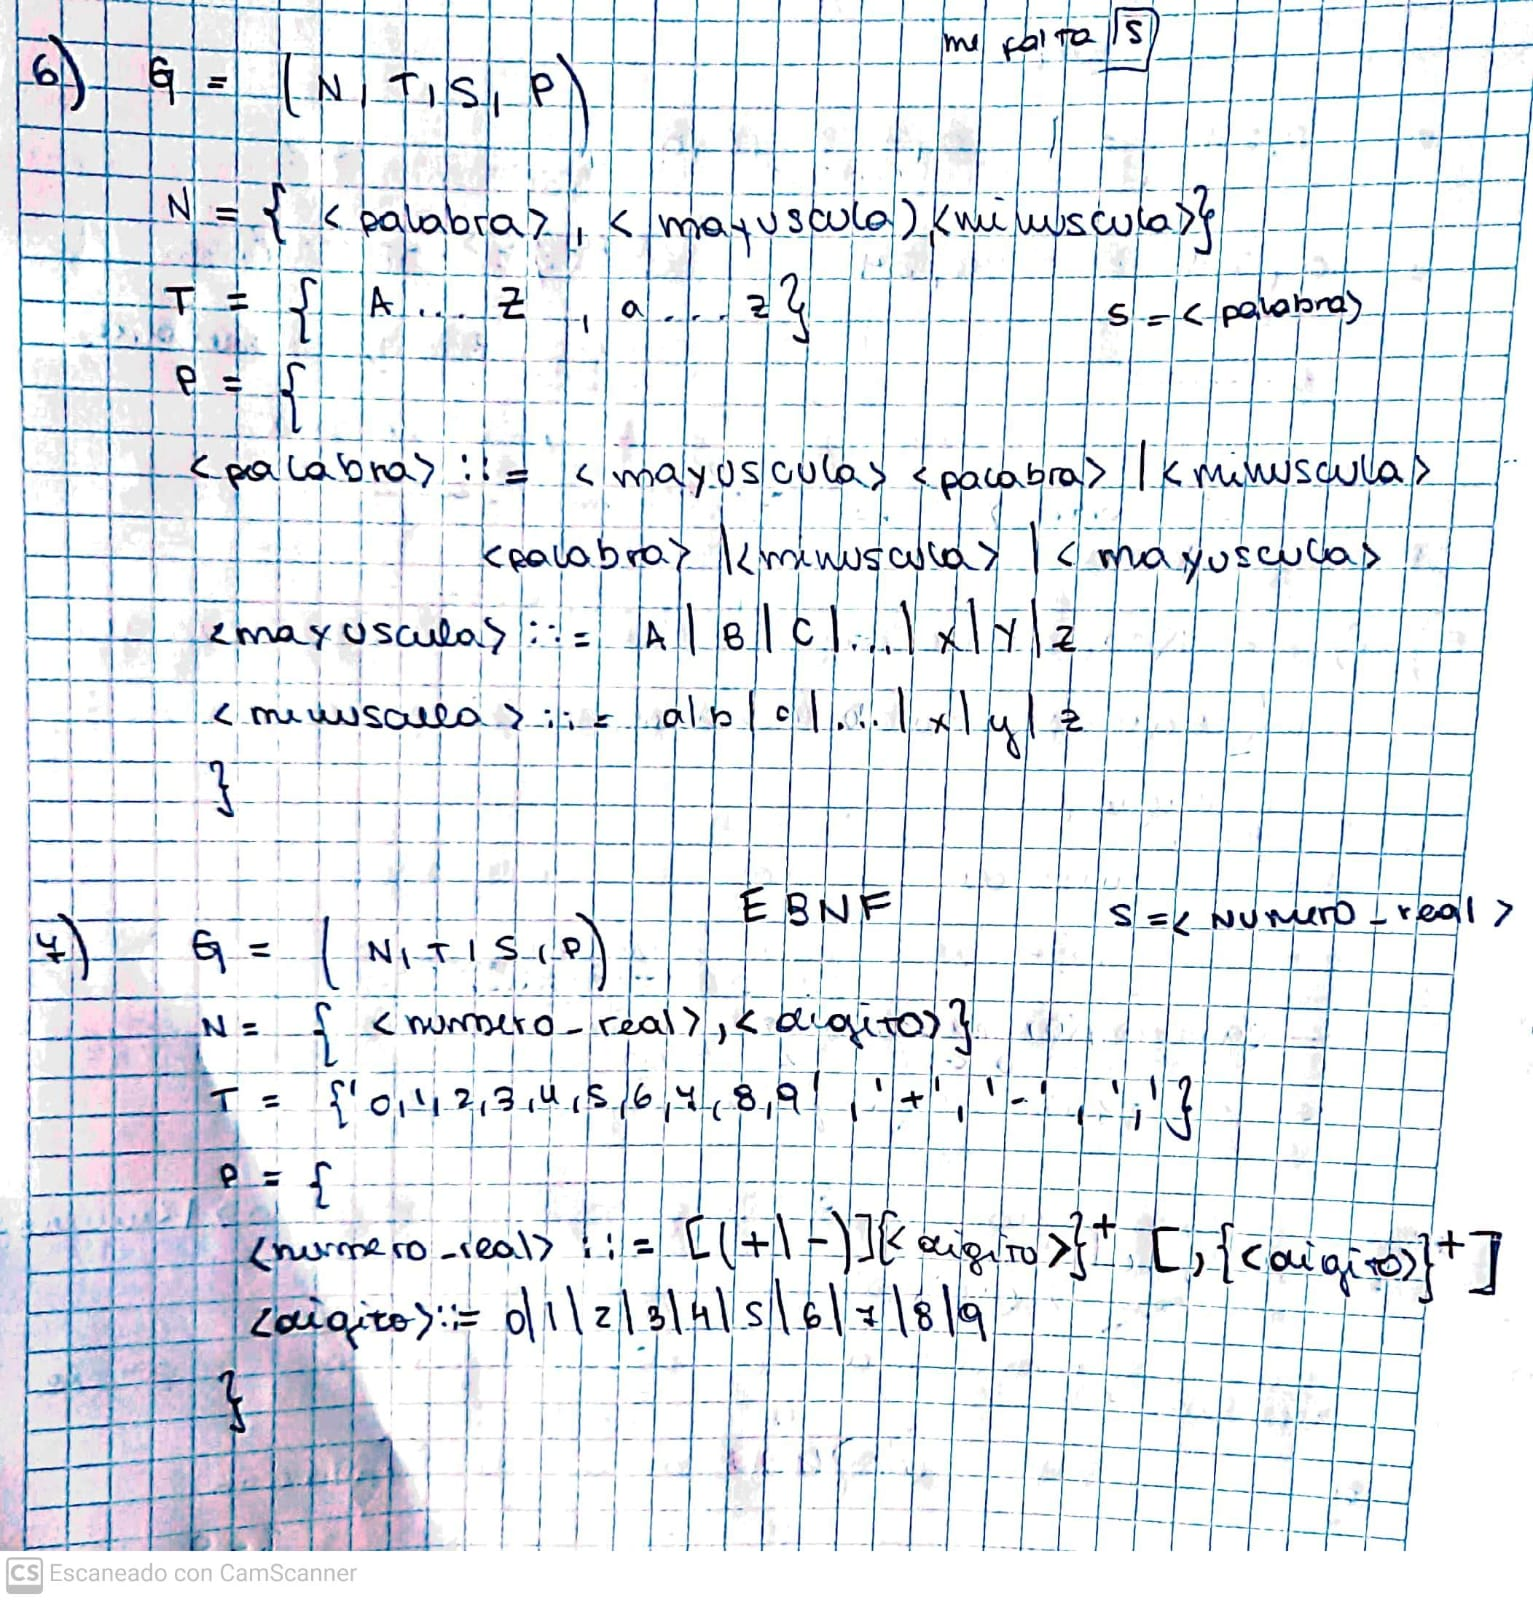 me falta S
6) G = (N, T, S, P)
N = { <palabra>, < mayuscula) <minuscula>}
T = { A ... Z , a ... z}
S = < palabra>
P = {
<palabra> ::= < mayuscula> <palabra> | <minuscula>
<palabra> |<minuscula> | < mayuscula>
<mayuscula> ::= A | B | C |...| x | Y | z
< minuscula > ::= a|b | c |...| x| y| z
}
EBNF
S =< Numero_real >
7) G = ( N, T, S, P)
N = { <numero_real>, < digito>}
T = {'0,1,2,3,4,5,6,7,8,9' , '+', '-' , ','}
P = {
<numero_real> ::= [(+|-)]{<digito>}+ [,{<digito>}+]
<digito>::= 0|1|2|3|4|5|6|7|8|9
}
CS Escaneado con CamScanner